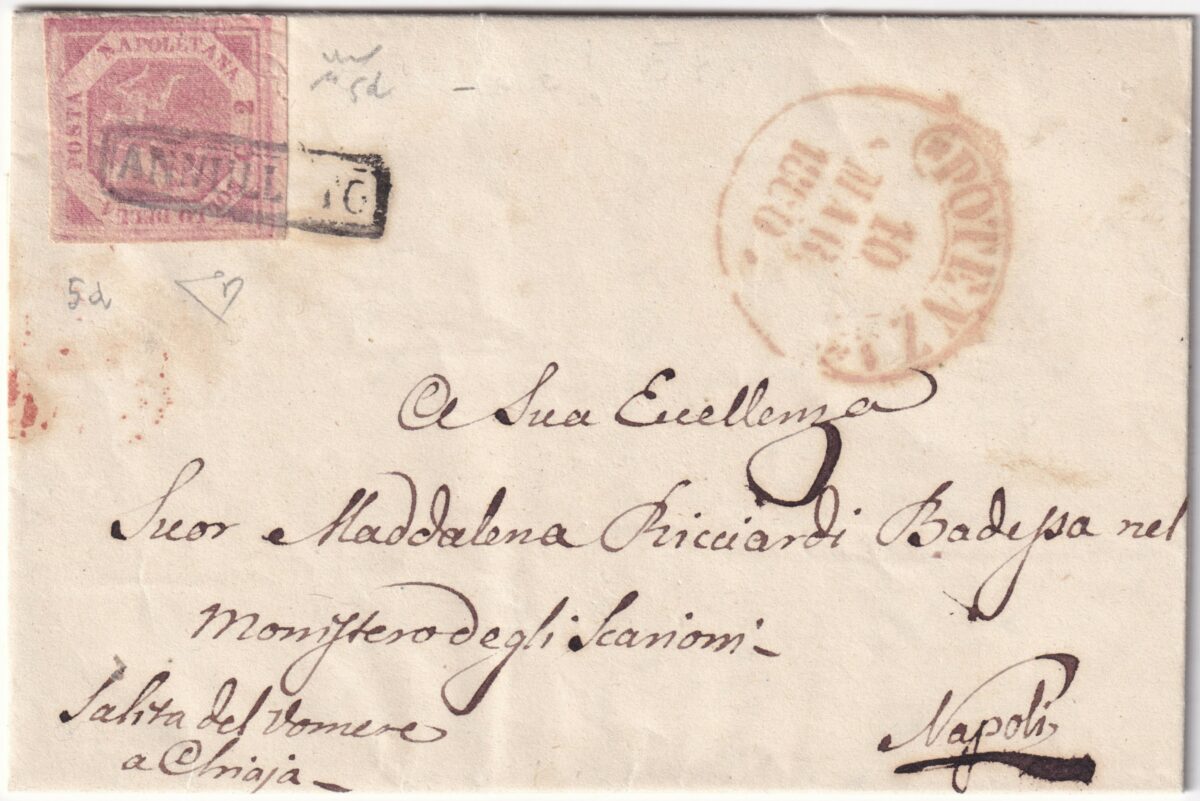 POSTA
NAPOLETANA
2
ANNULLATO
5d
5d
POTENZA
10
MAR
A Sua Eccellenza
Suor Maddalena Ricciardi Badessa nel
Monistero degli Scarioni
Salita del Vomere
a Chiaja
Napoli